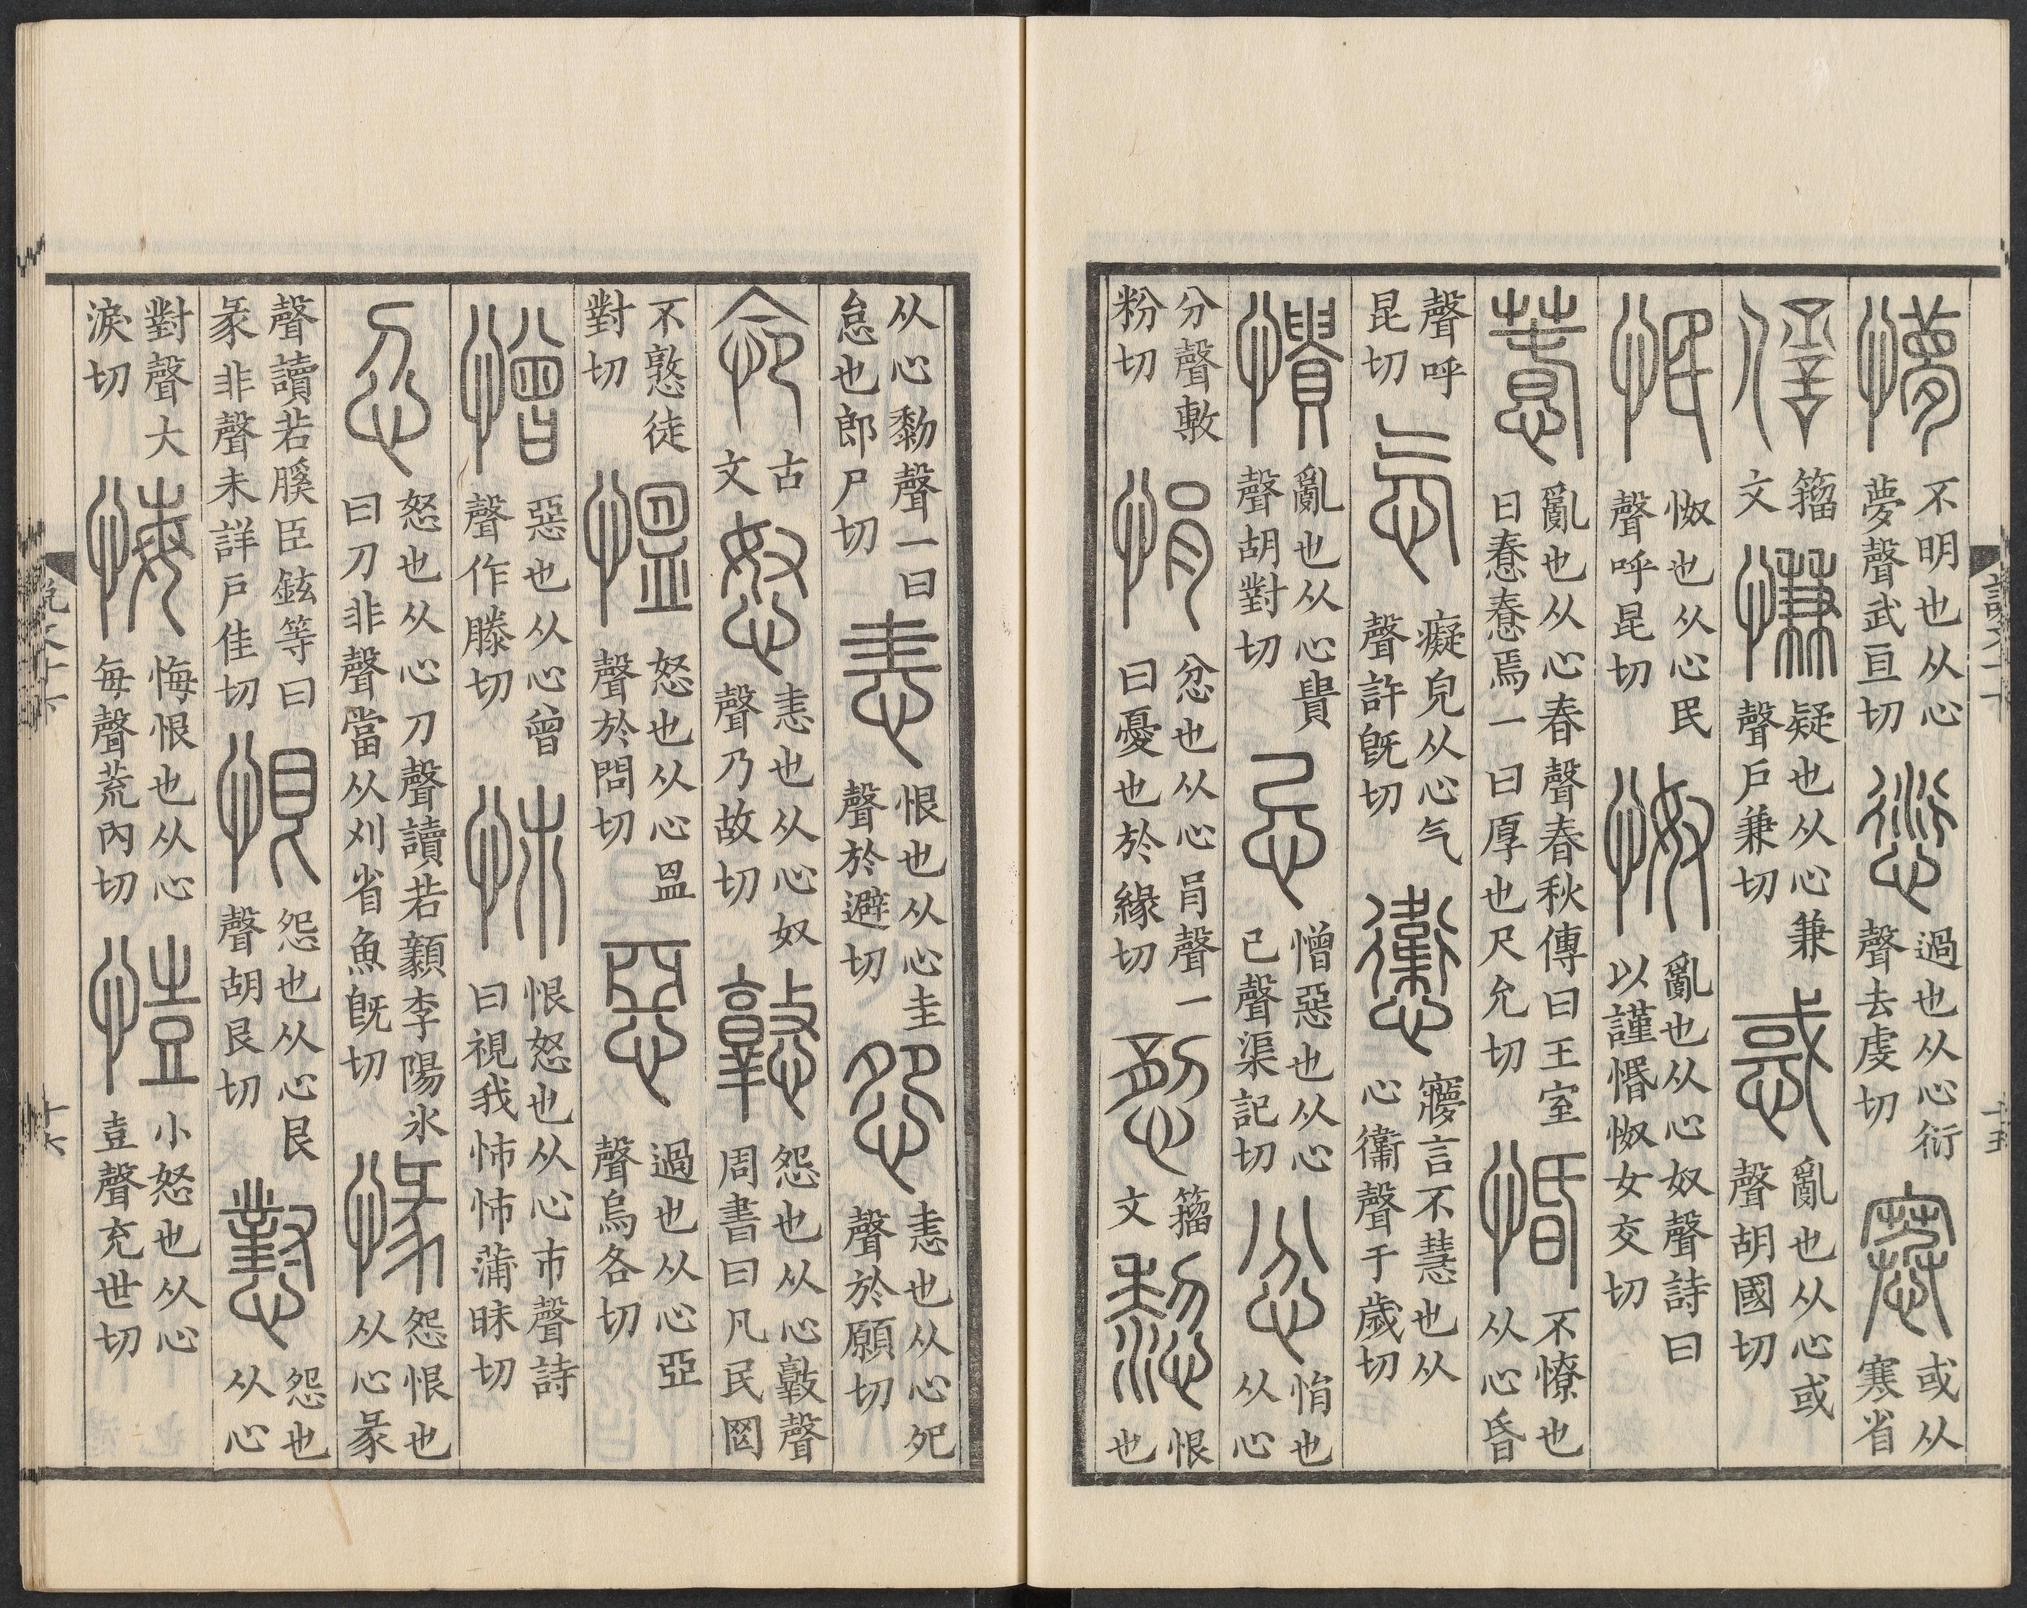 懜不明也从心夢聲武亘切愆過也从心衍聲去虔切𡫼或从寒省
𠎝籒文慊疑也从心兼聲戶兼切惑亂也从心或聲胡國切
怋怓也从心民聲呼昆切怓亂也从心奴聲詩曰以謹惽怓女交切
惷亂也从心春聲春秋傳曰王室曰惷惷焉一曰厚也尺允切惛不憭也从心昏
聲呼昆切忥癡皃从心气聲許旣切𢥏㝱言不慧也从心衞聲于歲切
憒亂也从心貴聲胡對切忌憎惡也从心己聲渠記切忿悁也从心
分聲敷粉切悁忿也从心肙聲一曰憂也於緣切籒文𢤂恨也
説文十下
十五
从心黎聲一曰怠也郎尸切恚恨也从心圭聲於避切怨恚也从心夗聲於願切
古文怒恚也从心奴聲乃故切憝怨也从心敦聲周書曰凡民罔
不憝徒對切慍怒也从心𥁕聲於問切惡過也从心亞聲烏各切
憎惡也从心曾聲作滕切怖恨怒也从心巿聲詩曰視我怖怖蒲昧切
㣻怒也从心刀聲讀若顡李陽冰曰刀非聲當从刈省魚旣切㥟怨恨也从心彖
聲讀若膎臣鉉等曰彖非聲未詳戶佳切恨怨也从心艮聲胡艮切懟怨也从心
對聲大淚切悔悔恨也从心每聲荒內切㦃小怒也从心壴聲充世切
説文十下
十六